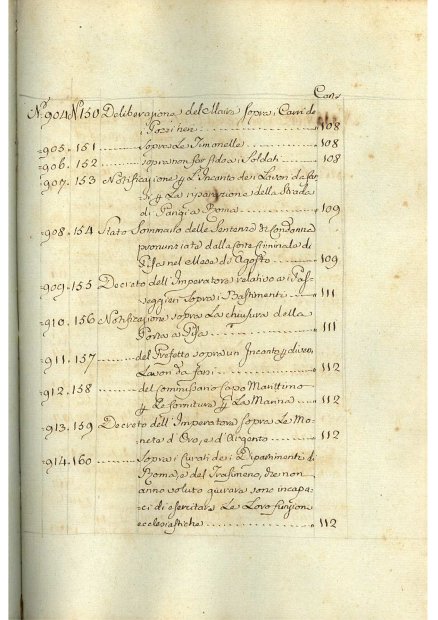 Carte
N.° 904 N. 150 Deliberazione del Maire sopra i Carri de
Pozzi neri " 108
" 905. 151 sopra le Timonelle " 108
" 906. 152 sopra non far fido a Soldati " 108
" 907. 153 Notificazione p l'Incanto dei Lavori da far,
si p La riparazione della Strada
di Parigi a Roma " 109
908. 154 Stato Sommario delle Sentenze di Condanna
pronunziate dalla Corte Criminale di
Pisa nel Mese di Agosto " 109
" 909. 155 Decreto dell'Imperatore relativo ai Pas,
seggieri sopra i Bastimenti " 111
" 910. 156 Notificazione sopra La chiusura della
Porta a Pisa " 111
" 911. 157 del Prefetto sopra un Incanto p diversi
Lavori da farsi " 112
" 912. 158 del Commissario Capo Marittimo
p Le forniture p La Marina " 112
" 913. 159 Decreto dell'Imperatore sopra Le Mo,
nete d'Oro, e d'Argento " 112
" 914. 160 Sopra i Curati dei Dipartimenti di
Roma, e del Trasimeno, che non
anno voluto giurare sono incapa,
ci di esercitare Le Loro funzioni
ecclesiastiche " 112